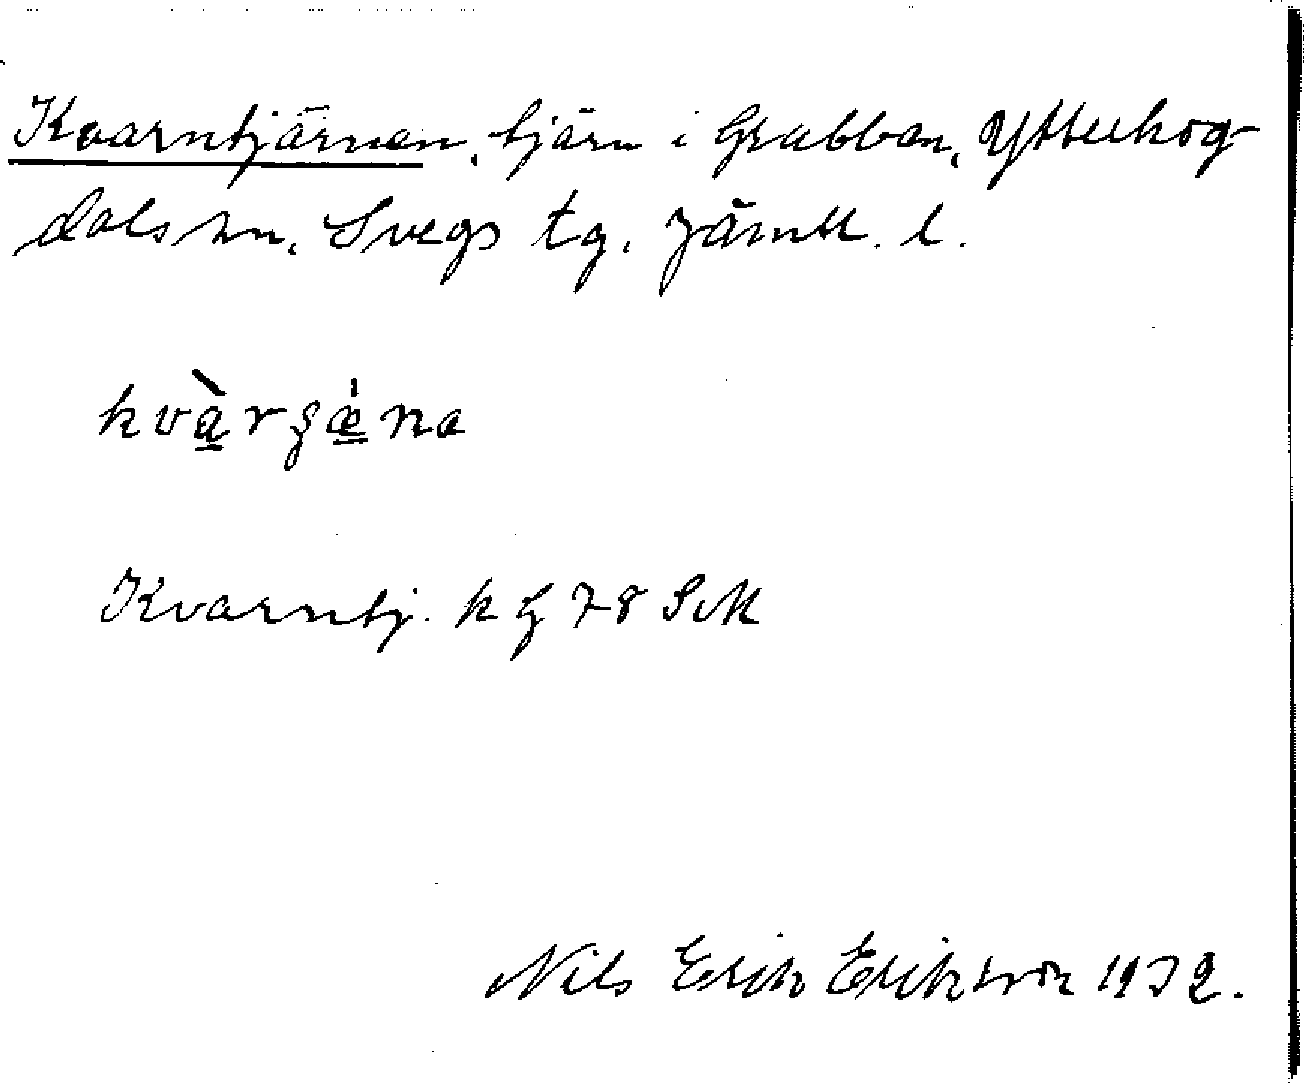 Kvarntjärnen, tjärn i Grubban, Ytterhog-
dals sn, Svegs tg, Jämtl. l.
kvàrʂæ̀na
Kvarntj. k ζ 78 SvK
Nils Erik Erikson 1932.